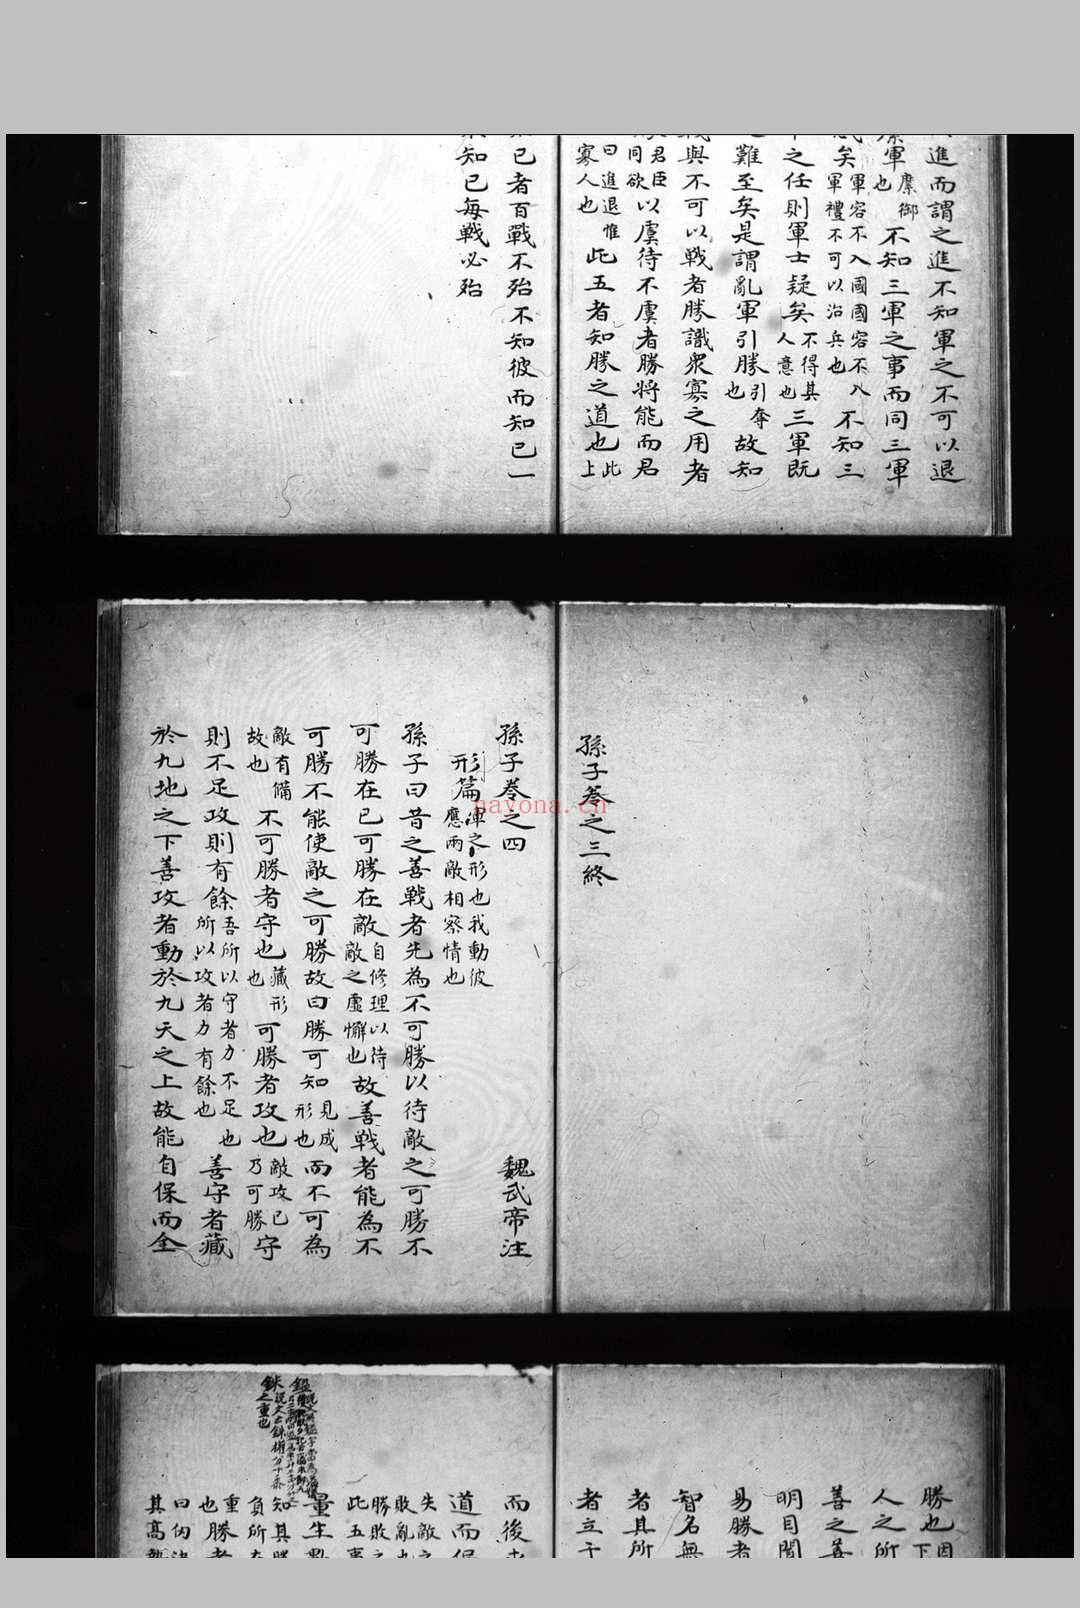 進而謂之進不知軍之不可以退
軍
糜御
也
不知三軍之事而同三軍
矣
軍容不入國國容不入
軍禮不可以治兵也
不知三
之任則軍士疑矣
不得其
人意也
三軍既
難至矣是謂亂軍引勝
引奪
也
故知
與不可以戰者勝識衆寡之用者
君臣
同欲
以虞待不虞者勝將能而君
曰進退惟
寡人也
此五者知勝之道也
此
上
己者百戰不殆不知彼而知己一
知己每戰必殆
孫子卷之三終
孫子卷之四
魏武帝注
形篇
軍之形也我動彼
應兩敵相察情也
孫子曰昔之善戰者先為不可勝以待敵之可勝不
可勝在己可勝在敵
自修理以待
敵之虛懈也
故善戰者能為不
可勝不能使敵之可勝故曰勝可知
見成
形也
而不可為
敵有備
故也
不可勝者守也
藏形
也
可勝者攻也
敵攻己
乃可勝
守
則不足攻則有餘
吾所以守者力不足也
所以攻者力有餘也
善守者藏
於九地之下善攻者動於九天之上故能自保而全
勝也
因
下
人之所
善之善
明目聞
易勝者
智名無
者其所
者立于
而後
道而保
失敵之
敗亂也
勝敗之
此五事
量生數
知其勝
負所在
重
也
勝者
曰
其高
鎰
銖
說文云銖權分十黍
之重也
nayona.cn